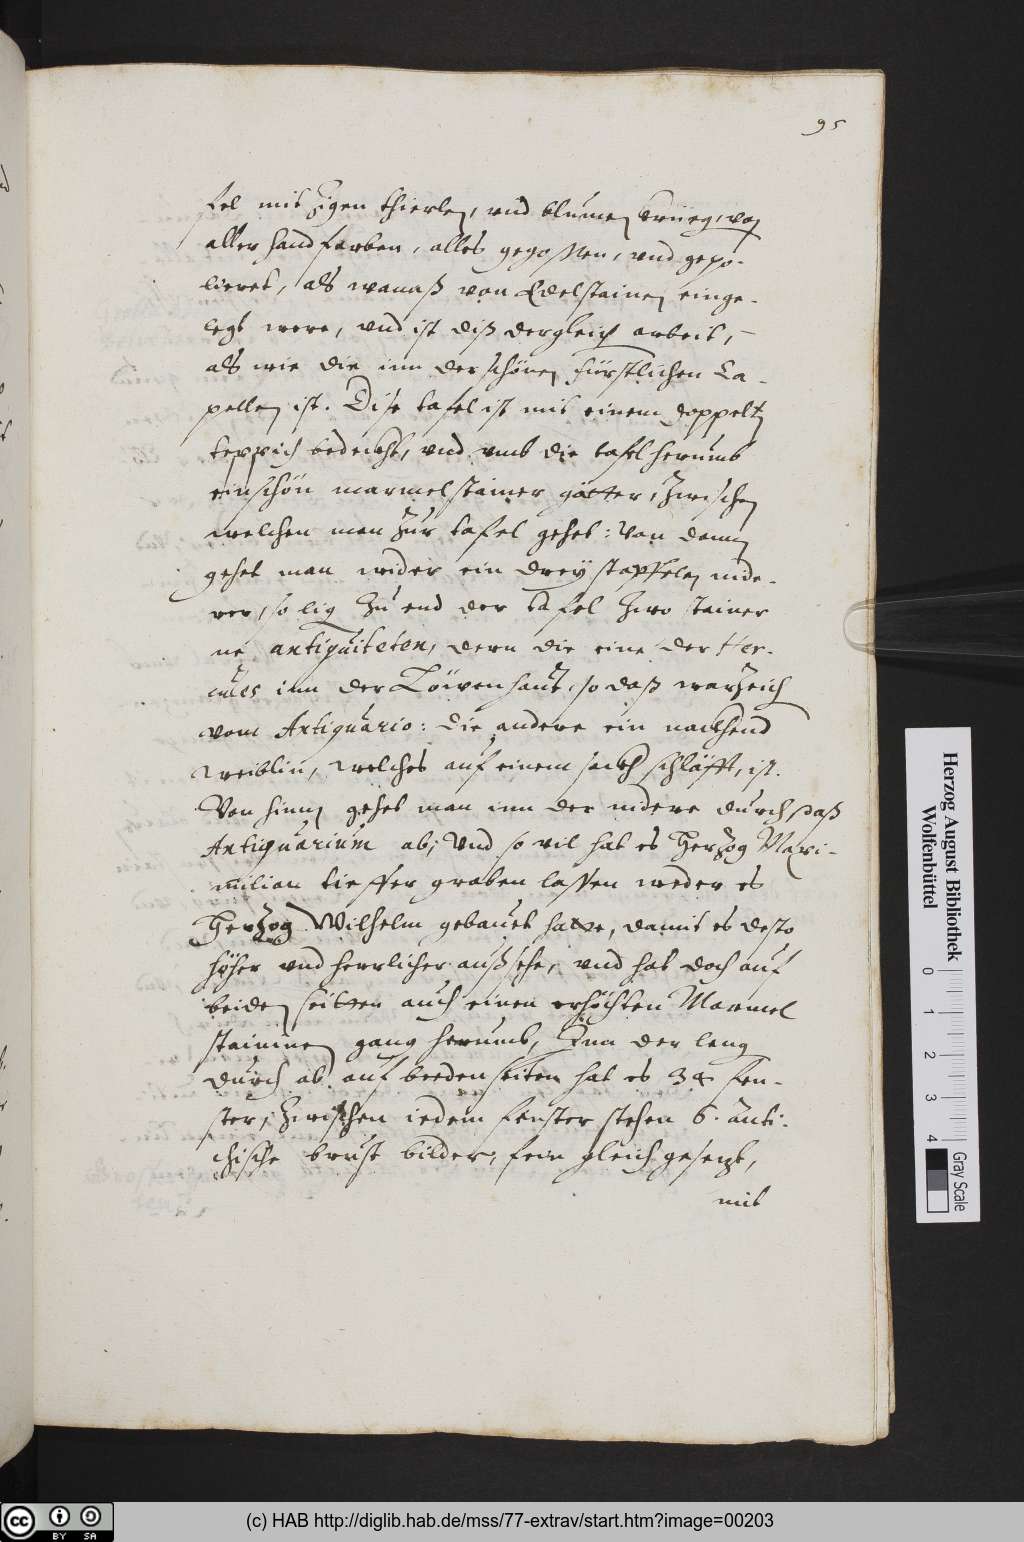 95
fel mit Zigen thierlen, vnd blumen Krüeg, von
aller hand farben, alles gegossen, vnd gepo-
lieret, als wanaß von Edelstainen einge-
legt were, vnd ist diß dergleich arbeit,
als wie die inn der schönen fürstlichen Ca-
pellen ist. Dise tafel ist mit einem doppelt
teppich bedeckht, vnd vmb die tafel herumb
ein schön marmelstainer gätter, Zwischen
welchen man Zur tafel gehet: Von dannen
gehet man wider ein drey stapffelen nide-
rer, so lig Zu end der tafel Zwo stainer
ne antiquiteten, dern die eine der Her-
cules inn der Löwenhaut, so daß warzeich
vom Antiquario: die andere ein nackhend
weiblin, welches auf einem sackh schläfft, ist.
Von hinnen gehet man inn der nidere durch daß
Antiquarium ab, Vnd so vil hat es Herzog Maxi-
milian tieffer graben lassen weder es
Herzog Wilhelm gebauet hatte, damit es desto
höher vnd herrlicher außsehe, vnd hat doch auf
beiden seitten auch einen erhöchten Marmel
staininen gang herumb, Inn der leng
durch ab auf beeden seiten hat es 34 fen-
ster, Zwischen iedem fenster stehen 6. anti-
chische brust bilder, fein gleich gesetzt,
mit
Herzog August Bibliothek
Wolfenbüttel
0 1 2 3 4
Gray Scale
cc BY SA
(c) HAB http://diglib.hab.de/mss/77-extrav/start.htm?image=00203